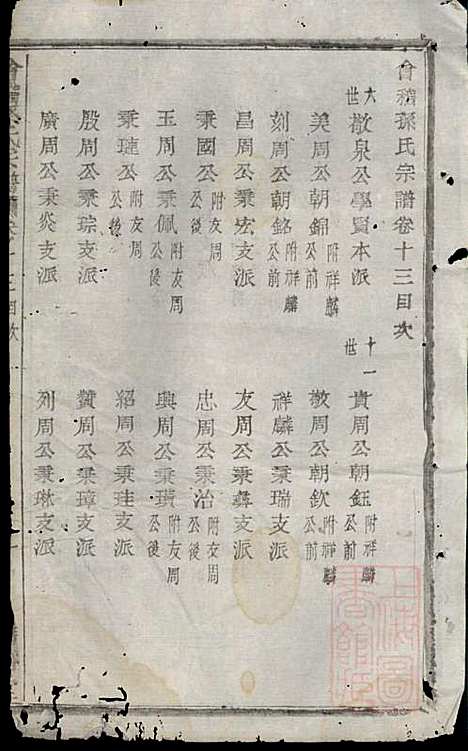 會稽孫氏宗譜卷十三目次
六世 敬泉公學賢本派 十一世 貴周公朝鈺 附祥麟公前
美周公朝錦 附祥麟公前 敬周公朝欽 附祥麟公前
刻周公朝銘 附祥麟公前 祥麟公秉瑞支派
昌周公秉宏支派 友周公秉彝支派
秉國公 附友周公後 忠周公秉治 附友周公後
玉周公秉佩 附友周公後 興周公秉璜 附友周公後
秉璉公 附友周公後 紹周公秉珪支派
殷周公秉琮支派 贊周公秉璋支派
廣周公秉炎支派 列周公秉琳支派